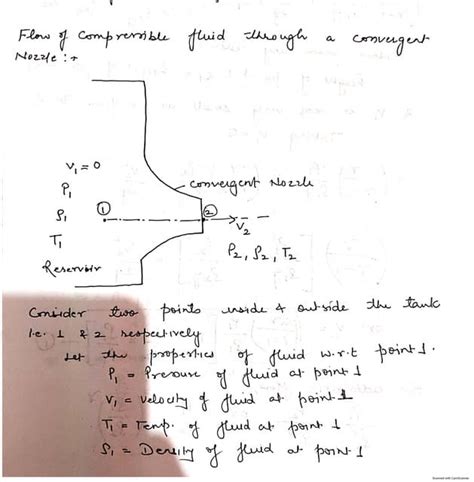 Flow of compressible fluid through a convergent
Nozzle :→
V₁ = 0
P₁
ρ₁
T₁
Reservoir
①
②
convergent Nozzle
V₂
P₂, ρ₂, T₂
Consider two points inside & outside the tank
i.e. 1 & 2 respectively
Let the properties of fluid w.r.t point 1.
P₁ = Pressure of fluid at point 1
V₁ = velocity of fluid at point 1
T₁ = Temp. of fluid at point 1
ρ₁ = Density of fluid at point 1
Scanned with CamScanner